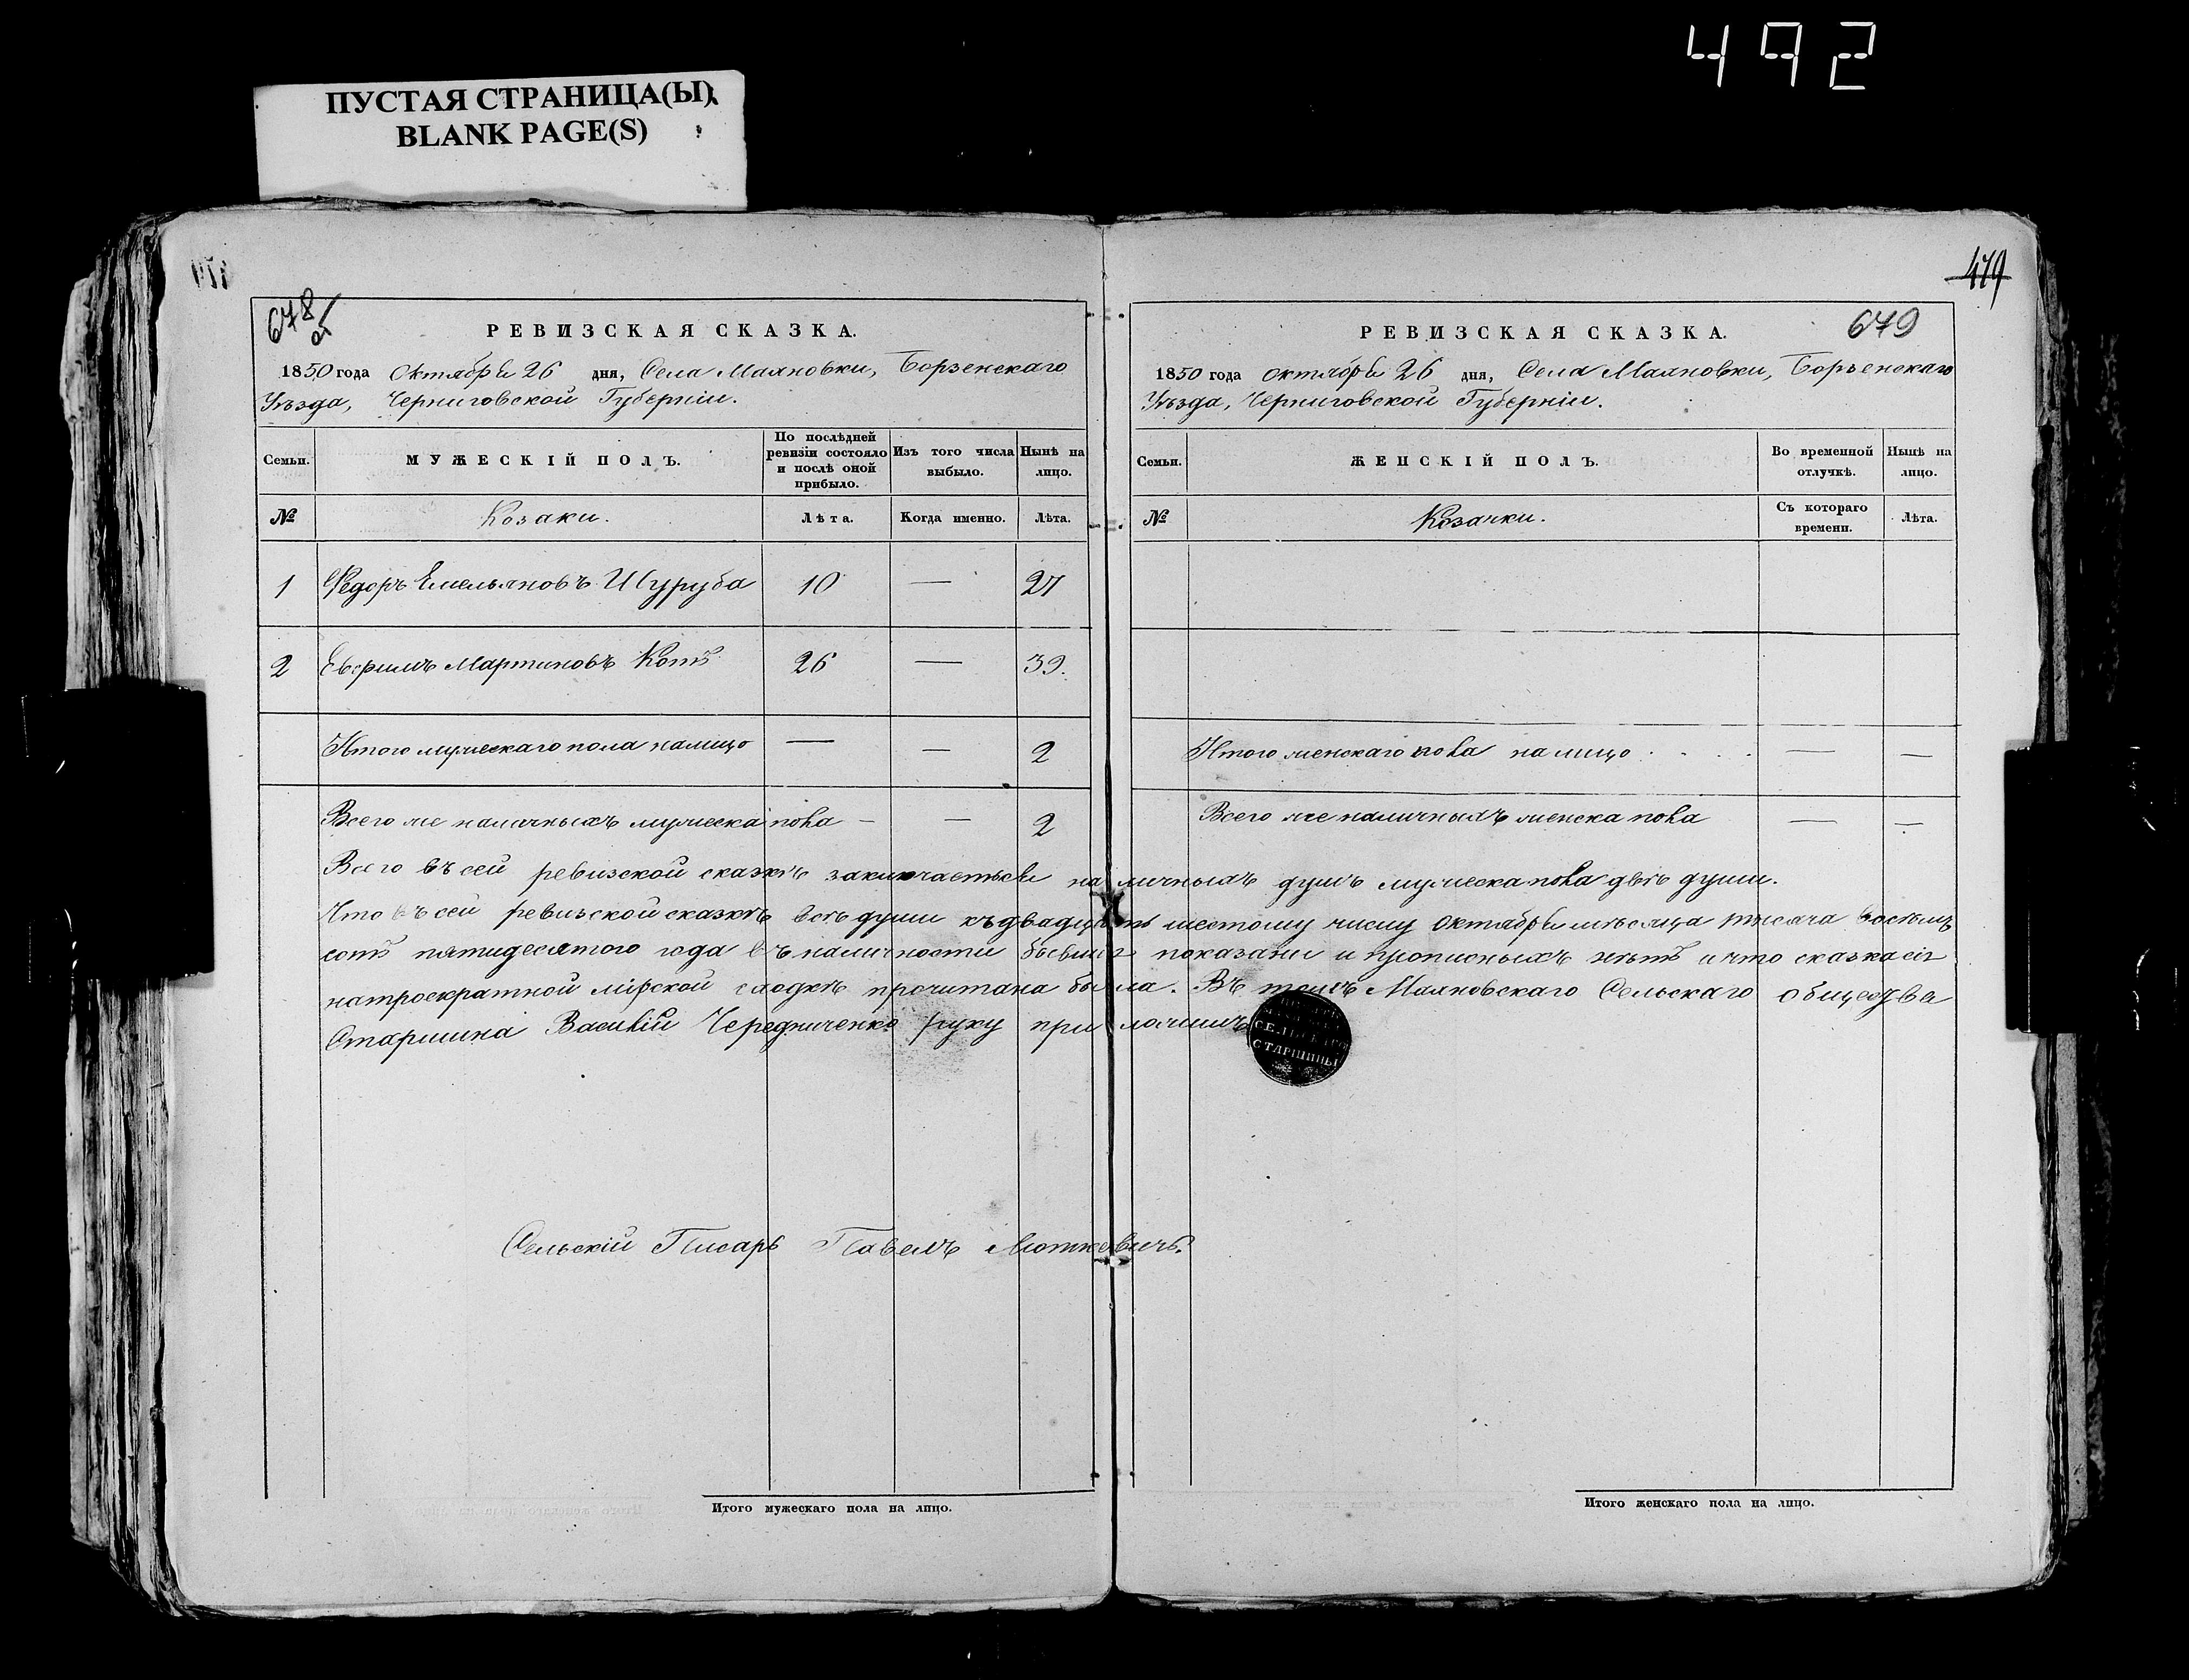 492
ПУСТАЯ СТРАНИЦА(Ы)
BLANK PAGE(S)
678 об
РЕВИЗСКАЯ СКАЗКА.
1850 года Октября 26 дня, Села Маяновки, Борзенскаго
Уѣзда, Черниговской Губерніи.
Семьи. МУЖЕСКІЙ ПОЛЪ. По послѣдней ревизіи состояло и послѣ оной прибыло. Изъ того числа выбыло. Нынѣ на лицо.
№ Козаки. Лѣта. Когда именно. Лѣта.
1 Федоръ Емельяновъ Шуруба 10 — 27
2 Евфимъ Мартиновъ Котъ 26 — 39.
Итого мужескаго пола налицо — — 2
Всего же наличныхъ мужеска пола — — 2
479
679
РЕВИЗСКАЯ СКАЗКА.
1850 года Октября 26 дня, Села Маяновки, Борзенскаго
Уѣзда, Черниговской Губерніи.
Семьи. ЖЕНСКІЙ ПОЛЪ. Во временной отлучкѣ. Нынѣ на лицо.
№ Козачки. Съ котораго времени. Лѣта.
Итого женскаго пола на лицо . . . . — —
Всего же наличныхъ женска пола — —
Всего въ сей ревизской сказкѣ заключается наличныхъ душъ мужеска пола двѣ души.
Что въ сей ревизской сказкѣ всѣ души къ двадцать шестому числу Октября мѣсяца тысяча восѣмъ
сотъ пятидесятого года въ наличности бывшіе показани и прописныхъ нѣтъ и что сказка сія
на троекратной мірской сходкѣ прочитана была. Въ томъ Маяновскаго Сельскаго общества
Старшина Василій Чередниченко руку приложилъ
СЕЛЬСКАГО
СТАРШИНЫ
Сельскій Писарь Павелъ Моткевичъ.
Итого мужескаго пола на лицо.
Итого женскаго пола на лицо.